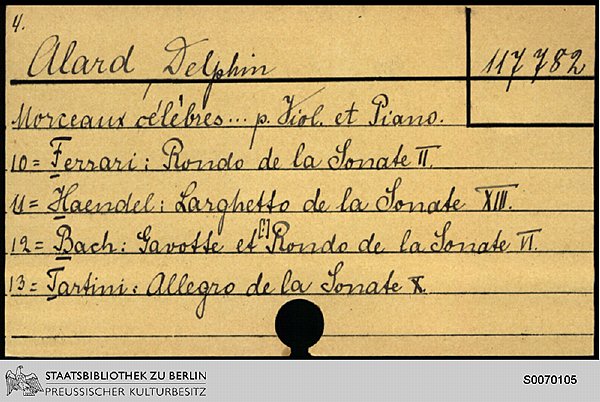 4.
Alard, Delphin 117 782
Morceaux célèbres... p. Viol. et Piano.
10= Ferrari: Rondo de la Sonate II.
11= Haendel: Larghetto de la Sonate XIII.
12= Bach: Gavotte et [:] Rondo de la Sonate VI.
13= Tartini: Allegro de la Sonate X.
STAATSBIBLIOTHEK ZU BERLIN
PREUSSISCHER KULTURBESITZ
S0070105